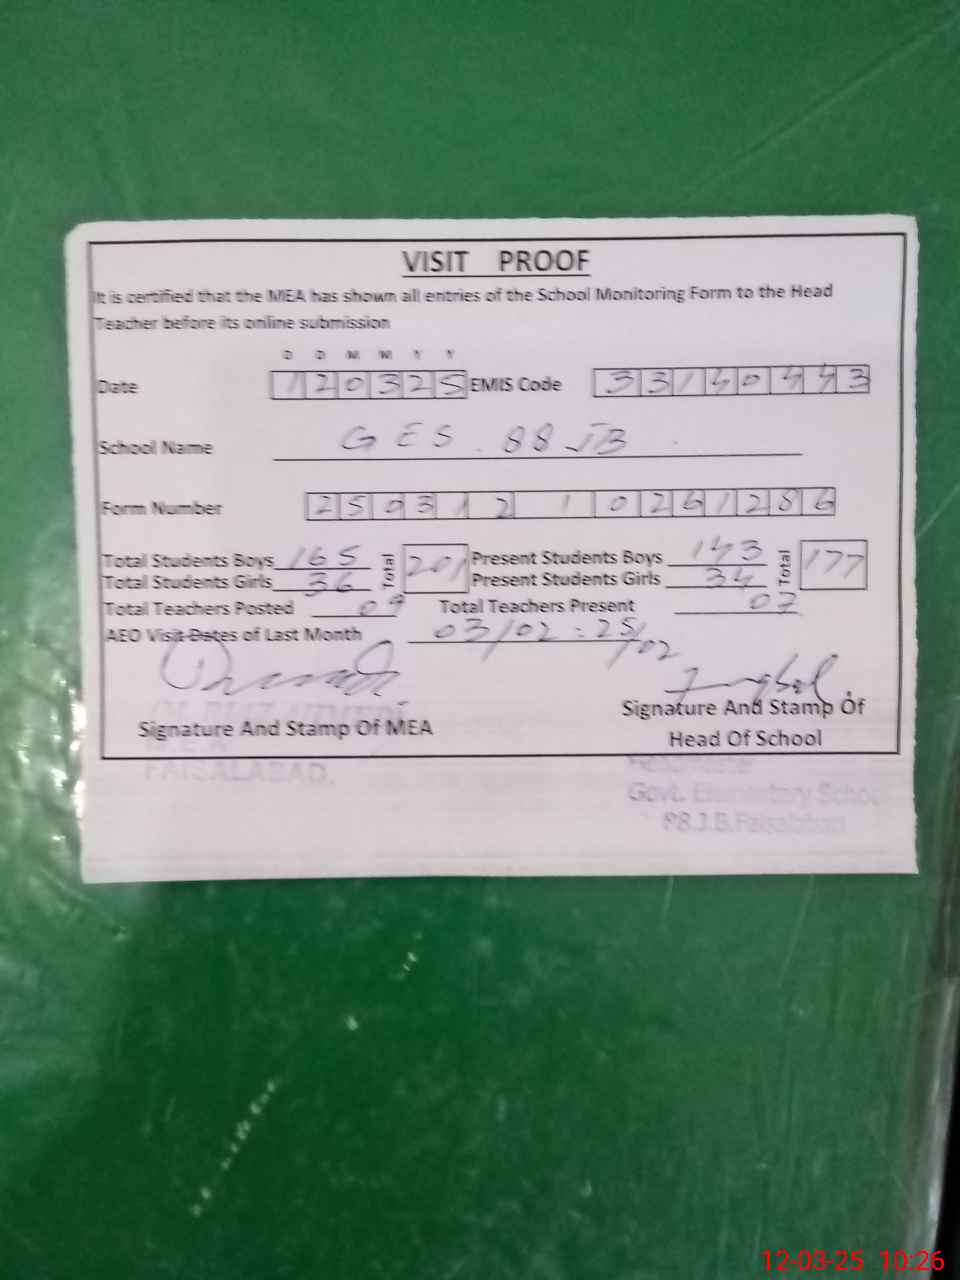 VISIT PROOF
It is certified that the MEA has shown all entries of the School Monitoring Form to the Head
Teacher before its online submission
D D M M Y Y
Date 120325 EMIS Code 33140443
School Name GES. 88 JB
Form Number 250312 1 0261286
Total Students Boys 165 Total 201 Present Students Boys 143 Total 177
Total Students Girls 36 Present Students Girls 34
Total Teachers Posted 09 Total Teachers Present 07
AEO Visit Dates of Last Month 03/02 : 25/02
Signature And Stamp Of MEA
Signature And Stamp Of
Head Of School
M.E.A
FAISALABAD.
Headmaster
Govt. Elementary School
88 J.B. Faisalabad
12-03-25 10:26